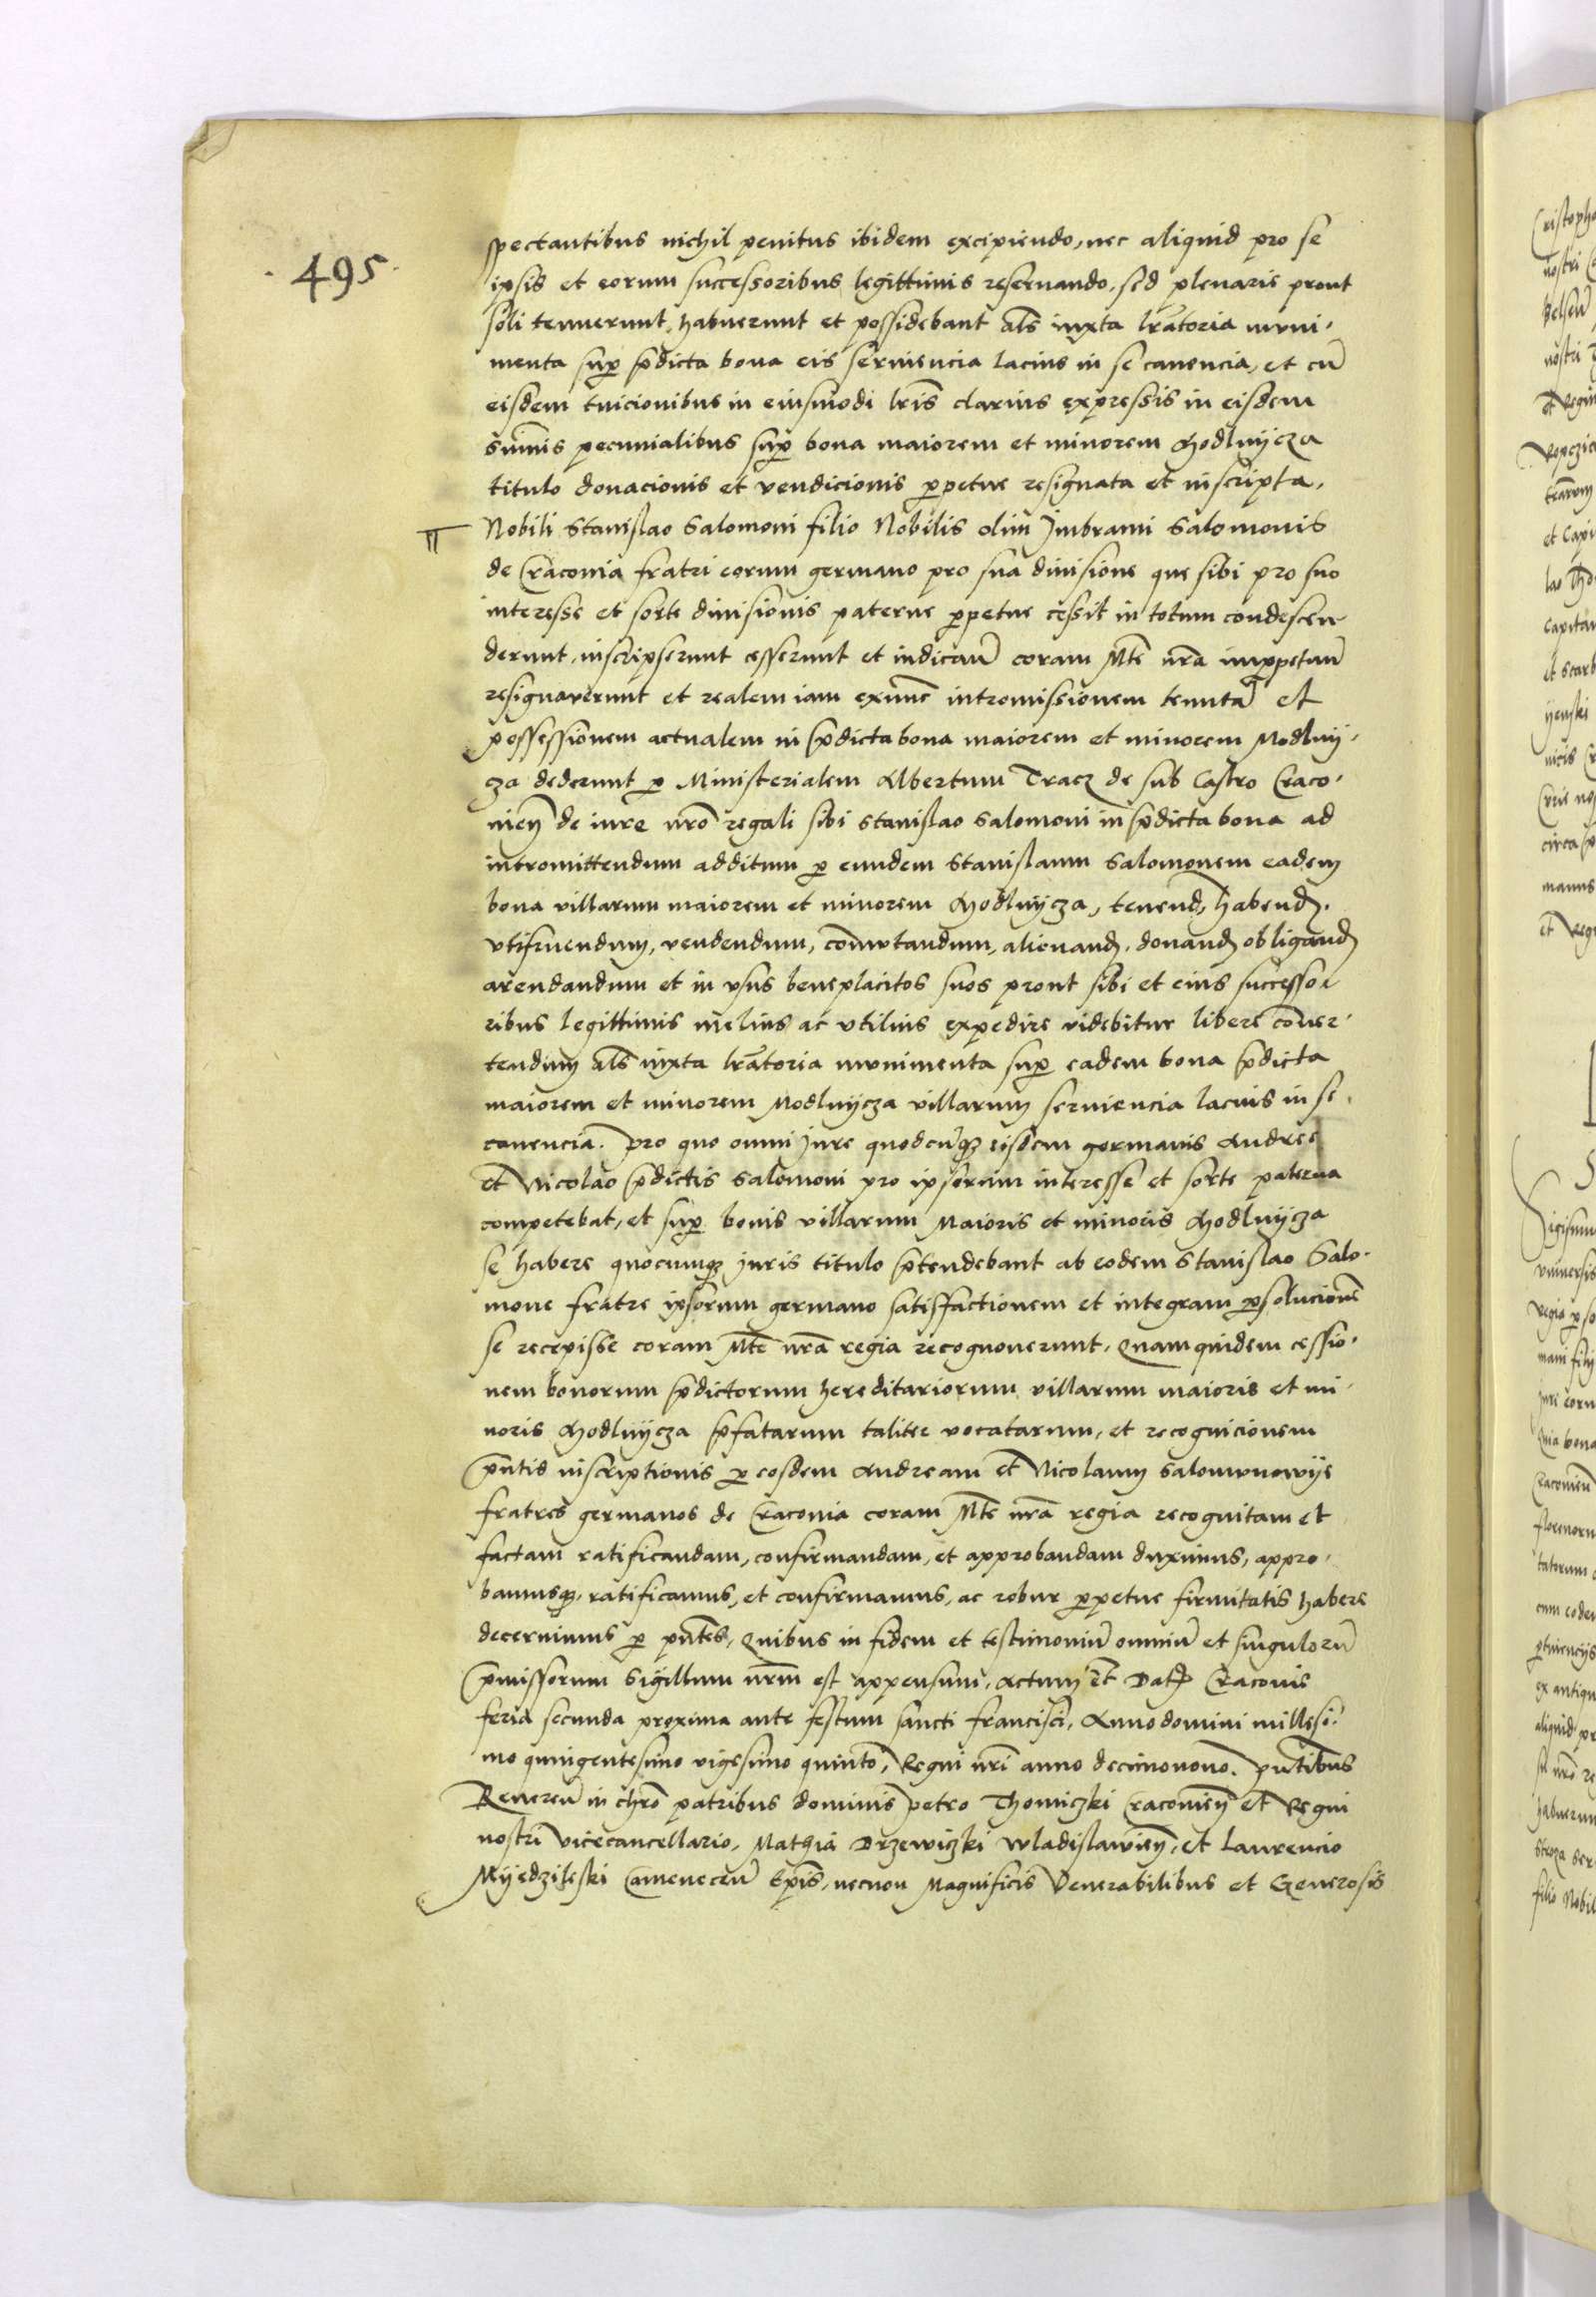 495
spectantibus nichil penitus ibidem excipiendo, nec aliquid pro se
ipsis et eorum successoribus legittimis reseruando, sed plenarie prout
soli tenuerunt, habuerunt et possidebant als iuxta lratoria muni-
menta sup pdicta bona eis seruiencia lacius in se canencia, et cu
eisdem tuicionibus in eiusmodi lris clarius expressis in eisdem
summis pecunialibus sup bona maiorem et minorem Modlnÿcza
titulo donacionis et vendicionis ppetue resignata et inscripta,
Nobili Stanislao Salomoni filio Nobilis olim Jmbrami Salomonis
de Craconia fratri eorum germano pro sua diuisione que sibi pro suo
interesse et sorte diuisionis paterne ppetue cessit in totum condescen-
derunt, inscripserunt cesserunt et indicaur coram Mte nra imppetuu
resignauerunt et realem iam exnunc intromissionem tenuta et
possessionem actualem in pdicta bona maiorem et minorem Modlnÿ-
cza dederunt p Ministerialem Albertum Tracz de sub Castro Craco-
nien de iure nro regali sibi Stanislao Salomoni in pdicta bona ad
intromittendum additum p eundem Stanislaum Salomonem eadem
bona villarum maiorem et minorem Modlnÿcza, tenend, habend,
vtifruendum, vendendum, comutandum, alienand, donand obligand
arendandum et in vsus beneplacitos suos prout sibi et eius successo-
ribus legittimis melius ac vtilius expedire videbitur libere conuer-
tendum als iuxta lratoria munimenta sup eadem bona pdicta
maiorem et minorem Modlnÿcza villarum seruiencia lacius in se
canencia. Pro quo omni Jure quodcuqz eisdem germanis Andree
et Nicolao pdictis Salomoni pro ipsorum interesse et sorte paterna
competebat, et sup bonis villarum Maioris et minoris Modlnÿcza
se habere quocumqz Juris titulo ptendebant ab eodem Stanislao Salo-
mone fratre ipsorum germano satisfactionem et integram psolucione
se recepisse coram Mte nra regia recognouerunt. Quamquidem cessio-
nem bonorum pdictorum hereditariorum villarum maioris et mi-
noris Modlnÿcza pfatarum taliter vocatarum, et recognicionem
pntis inscriptionis p eosdem Andream et Nicolaum Salomonowÿe
fratres germanos de Craconia coram Mte nra regia recognitam et
factam ratificandam, confirmandam, et approbandam duximus, appro-
bamusqz, ratificamus, et confirmamus, ac robur ppetue firmitatis habere
decernimus p pntes, Quibus in fidem et testimoniu omniu et singuloru
pmissorum Sigillum nrm est appensum. Actum et Dat Craconie
feria secunda proxima ante festum sancti francisci, Anno domini millesi-
mo quingentesimo vigesimo quinto, Regni nri anno decimonono. Pntibus
Reueren in chro patribus dominis Petro Thomiczki Craconien et Regni
nostri vicecancellario, Mathia Drzewiczki Wladislauien, et Laurencio
Mÿedzileski Camenecen Epis, necnon Magnificis Venerabilibus et Generosis